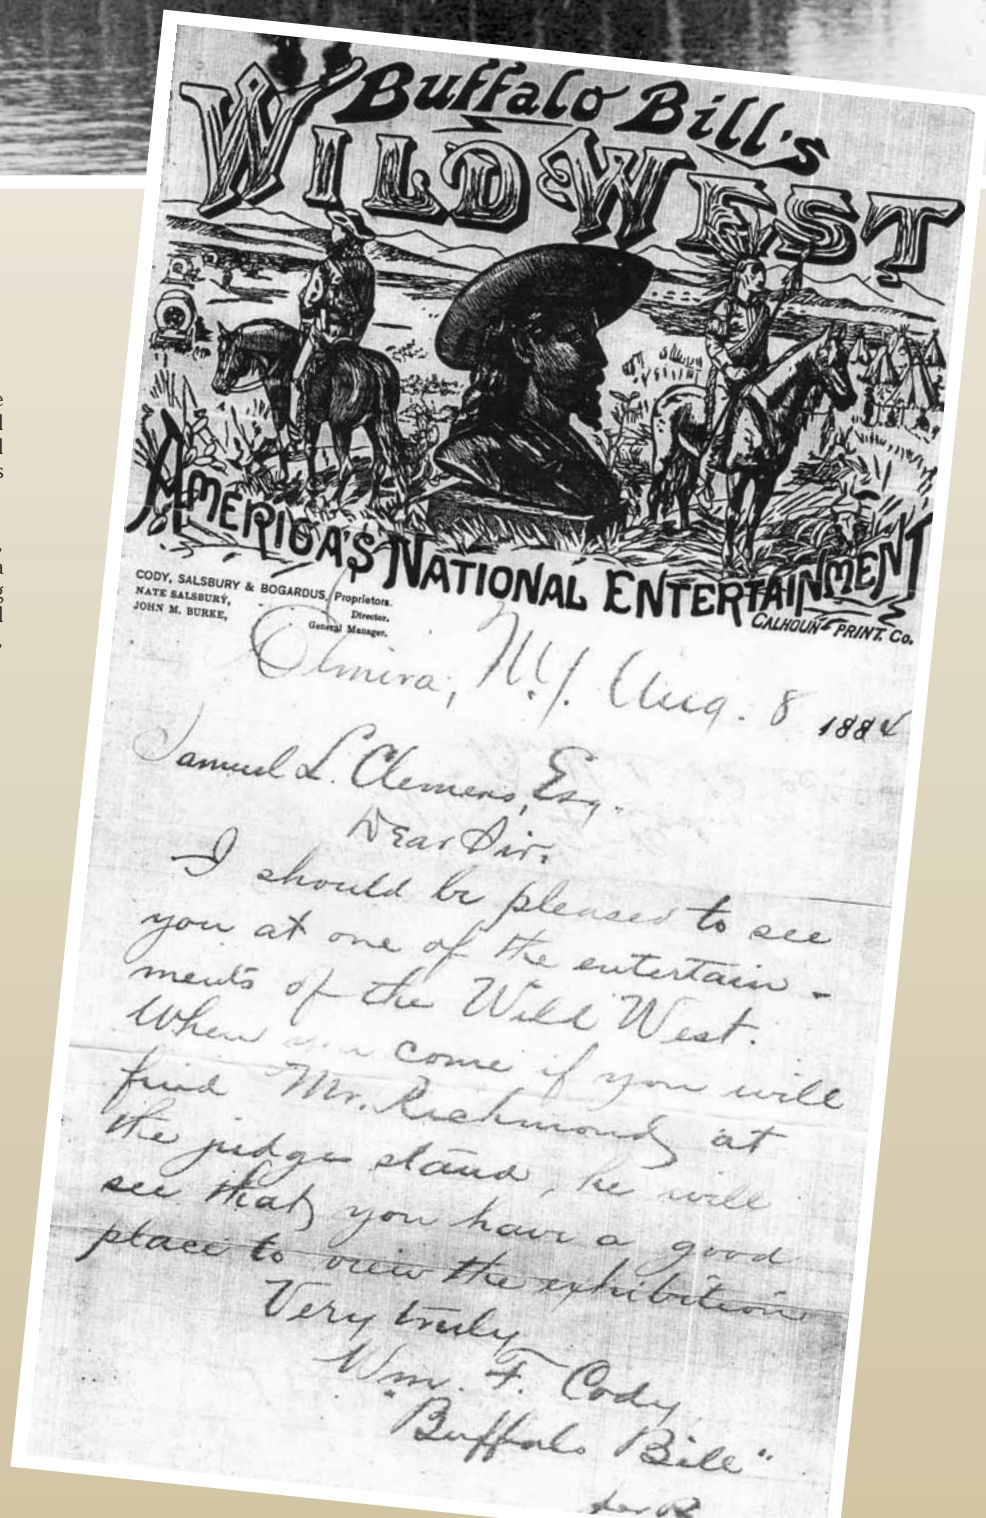 Buffalo Bill's
WILD WEST
AMERICA'S NATIONAL ENTERTAINMENT
CALHOUN PRINT. Co.
CODY, SALSBURY & BOGARDUS, Proprietors.
NATE SALSBURY, Director.
JOHN M. BURKE, General Manager.
Elmira, N.Y. Aug. 8 1884
Samuel L. Clemens, Esq.
Dear Sir.
I should be pleased to see
you at one of the entertain-
ments of the Wild West.
When you come if you will
find Mr. Richmond at
the judges stand, he will
see that you have a good
place to view the exhibition
Very truly
Wm. F. Cody
"Buffalo Bill"